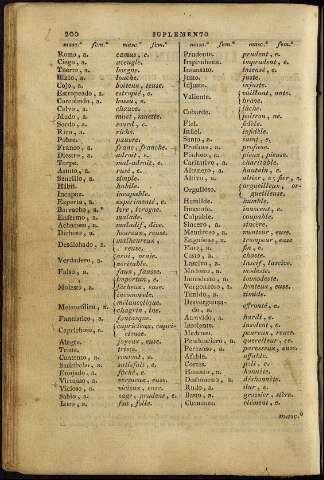 200 SUPLEMENTO
masc.º fem.º masc. fem.º
Romo, a. camus, e.
Ciego, a. aveugle.
Tuerto, a. borgne.
Bizco, a. louche.
Cojo, a. boiteux, euse.
Estropeado, a. estropié, e.
Corcobado, a. bossu, e.
Calvo, a. chauve.
Mudo, a. muet, muette.
Sordo, a. sourd, e.
Rico, a. riche.
Pobre. pauvre.
Franco, a. franc, franche.
Diestro, a. adroit, e.
Torpe. mal-adroit, e.
Astuto, a. rusé, e.
Sencillo, a. simple.
Hábil. habile.
Incapaz. incapable.
Experto, a. expérimenté, e.
Borracho, a. ivre, ivrogne.
Enfermo, a. malade.
Achacoso, a. maladif, dive.
Dichoso, a. heureux, euse.
Desdichado, a. malheureux, reuse.
Verdadero, a. vrai, vraie. véritable.
Falso, a. faux, fausse.
Molesto, a. importun, e. fâcheux, euse. incommode.
Melancólico, a. mélancolique. chagrin, ine.
Fantástico, a. fantasque.
Caprichoso, a. capricieux, capricieuse.
Alegre. joyeux, euse.
Triste. triste.
Contento, a. content, e.
Satisfecho, a. satisfait, e.
Enojado, a. fâché, e.
Virtuoso, a. vertueux, euse.
Vicioso, a. vicieux, euse.
Sabio, a. sage, prudent, e.
Loco, a. fou, folle.
masc.º fem.º masc. fem.º
Prudente. prudent, e.
Imprudente. imprudent, e.
Insensato. insensé, e.
Justo. juste.
Injusto. injuste.
Valiente. vaillant, ante. brave.
Cobarde. lâche. poltron, ne.
Fiel. fidèle.
Infiel. infidèle.
Santo, a. saint, e.
Profano, a. profane.
Piadoso, a. pieux, pieuse.
Caritativo, a. charitable.
Altanero, a. hautain, e.
Altivo, a. altier, e; fier, e.
Orgulloso. orgueilleux, orgueilleuse.
Humilde. humble.
Inocente. innocent, e.
Culpable. coupable.
Sincero, a. sincère.
Mentiroso, a. menteur, euse.
Engañoso, a. trompeur, euse
Fino, a. fin, e.
Casto, a. chaste.
Lascivo, a. lascif, lascive.
Modesto, a. modeste.
Inmodesto, a. immodeste.
Vergonzoso, a. honteux, euse.
Tímido, a. timide.
Desvergonzado, a. effronté, e.
Atrevido, a. hardi, e.
Insolente. insolent, e.
Medroso. peureux, reuse.
Pendenciero, a. querelleur, ce.
Perezoso, a. paresseux, euse.
Afable. affable.
Cortés. poli, e.
Honesto, a. honnête.
Deshonesto, a. déshonnête.
Rudo, a. dur, e.
Basto, a. grossier, sière.
Clemente. clément, e.
masc.º